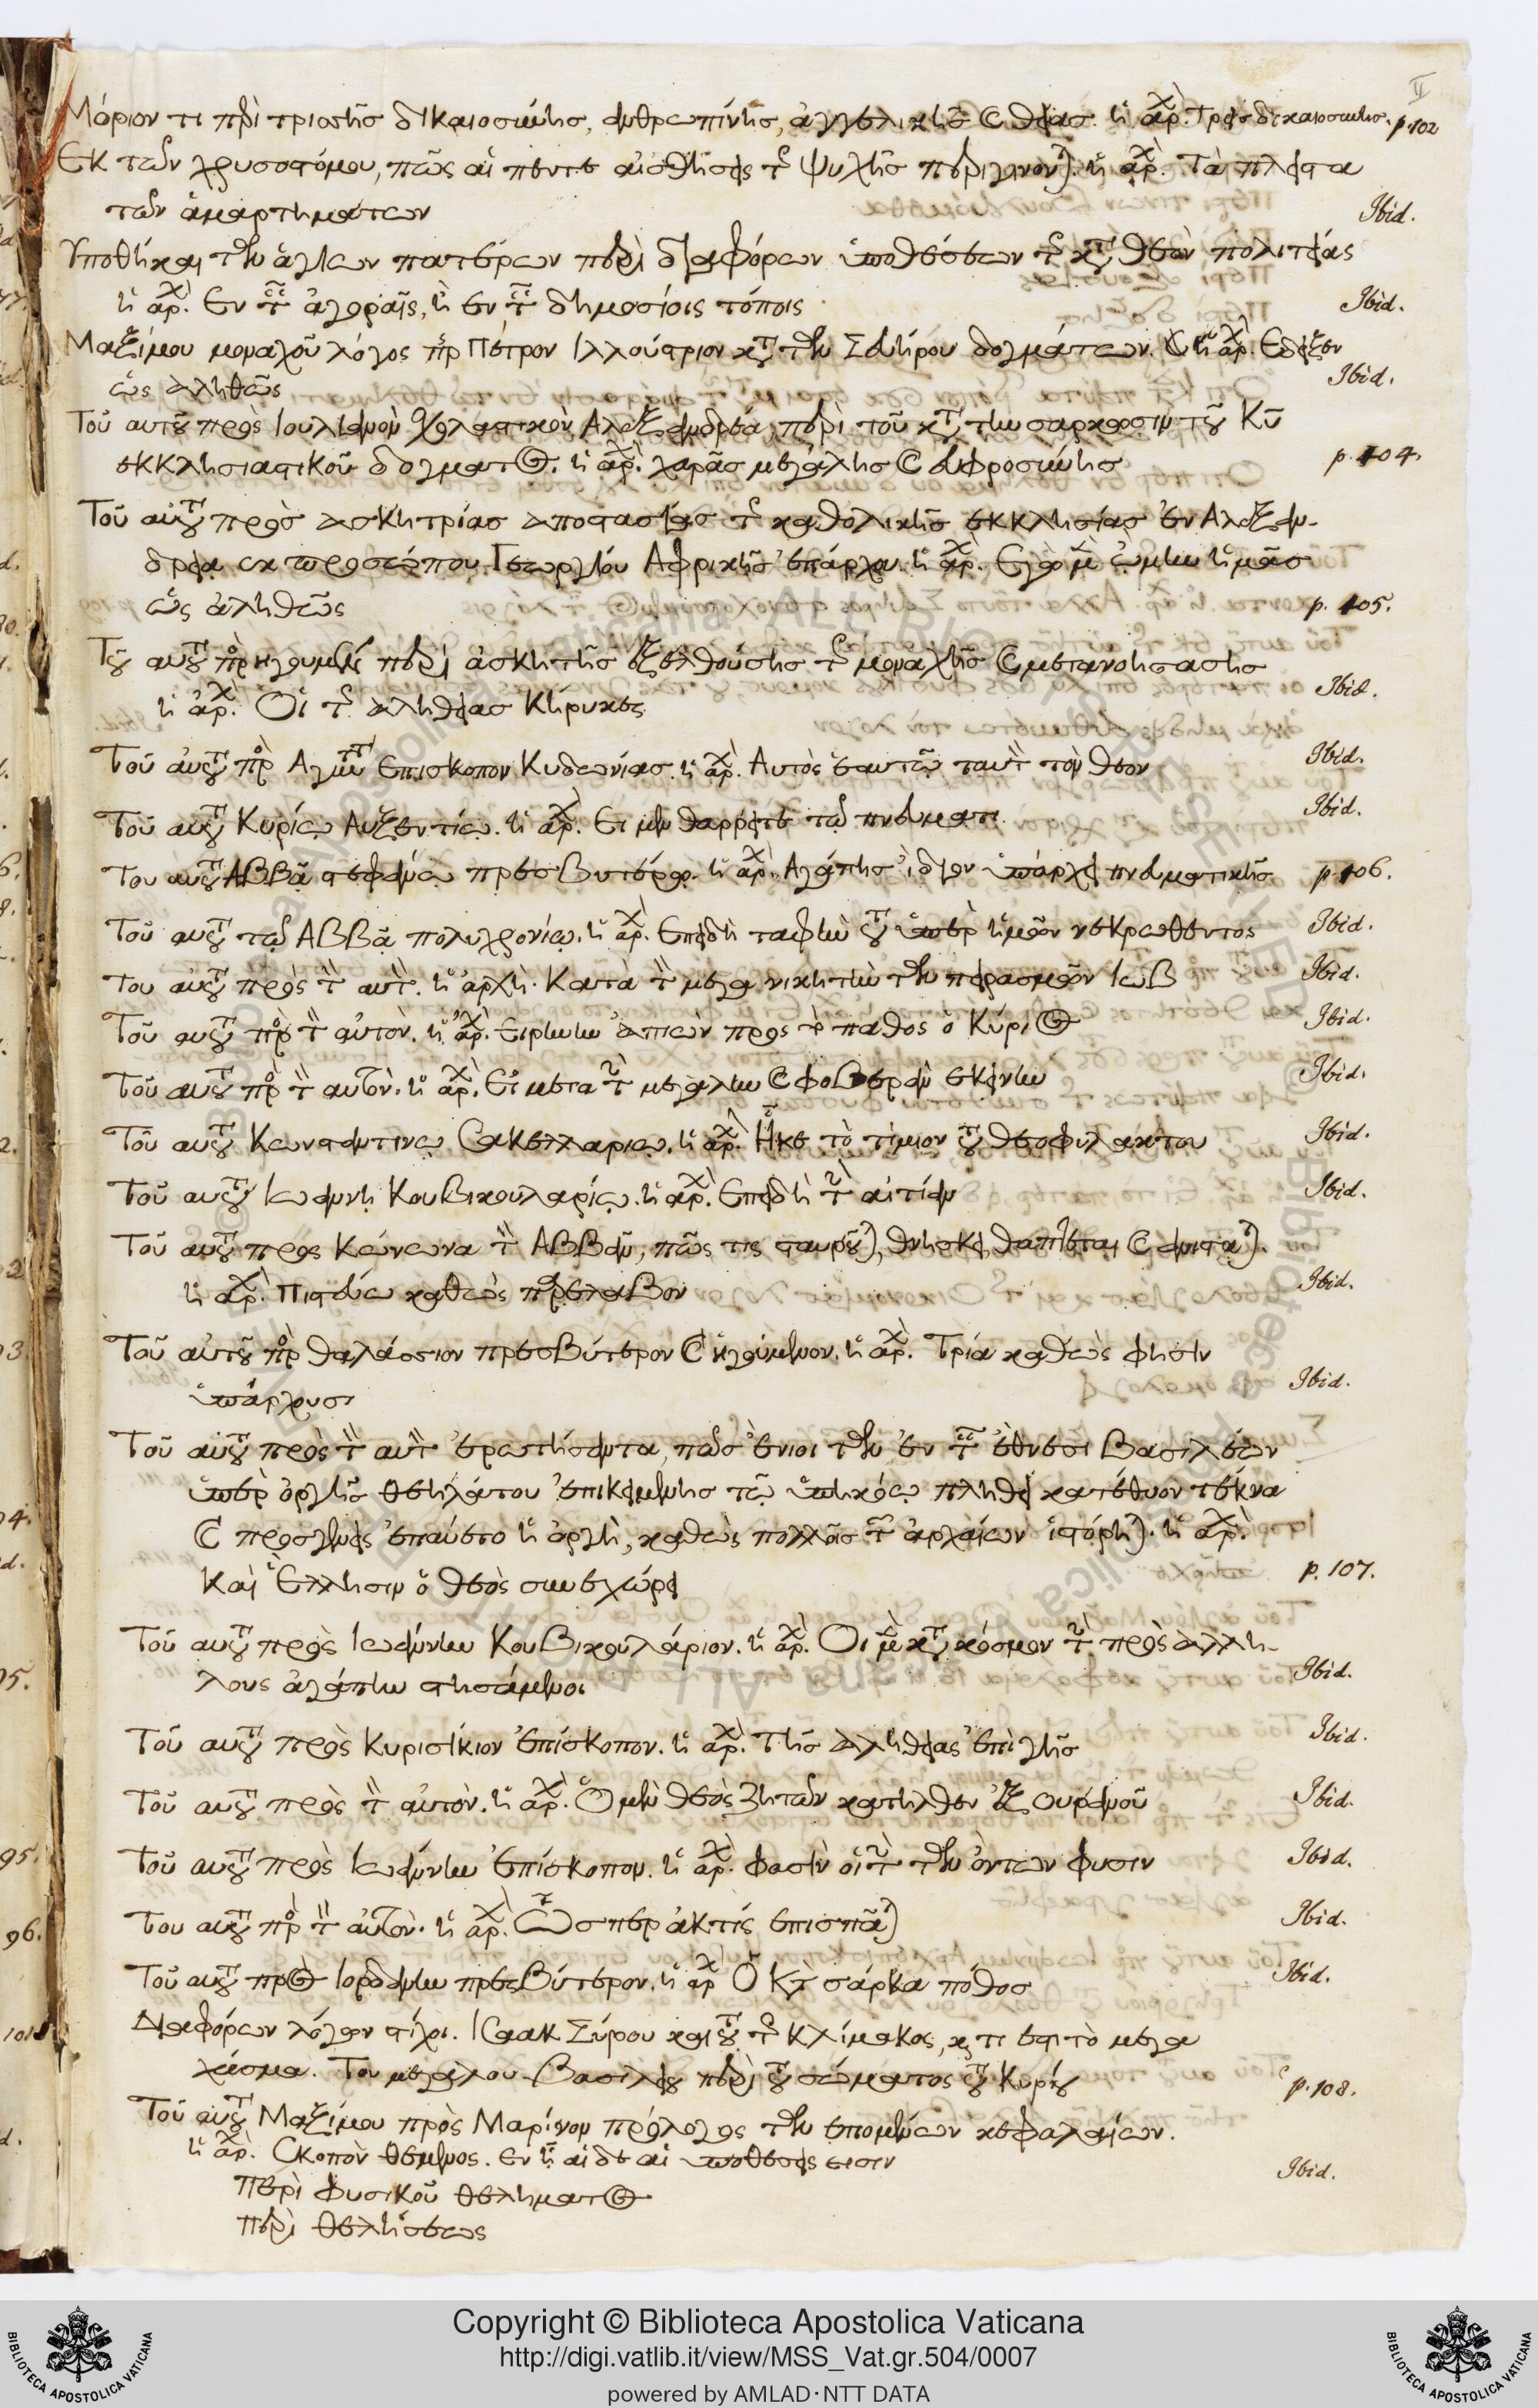 II
Μόριον τι περὶ τριττῆς δικαιοσύνης, ἀνθρωπίνης, ἀγγελικῆς καὶ θείας. ἡ ἀρχὴ. Τρεῖς δικαιοσύνης. p. 102
Εκ τῶν χρυσοστόμου, πῶς αἱ πέντε αἰσθήσεις τῆς ψυχῆς περιγίνονται. ἡ ἀρχὴ. Τὰ πλεῖστα
τῶν ἁμαρτημάτων Ibid.
Υποθῆκαι τῶν ἁγίων πατέρων περὶ διαφόρων ὑποθέσεων τῆς κατὰ θεὸν πολιτείας
ἡ ἀρχὴ. Εν ταῖς ἀγοραῖς, ἢ εν τοῖς δημοσίοις τόποις Ibid.
Μαξίμου μοναχοῦ λόγος πρὸς Πέτρον Ιλλούστριον κατὰ τῶν Σευήρου δογμάτων. ἡ ἀρχὴ. Εδειξεν
ὡς ἀληθῶς Ibid.
Τοῦ αυτοῦ πρὸς Ιουλιανὸν σχολαστικὸν Αλεξανδρέα, περὶ τοῦ κατὰ τὴν σάρκωσιν τοῦ Κυ
εκκλησιαστικοῦ δόγματος. ἡ ἀρχὴ. χαρᾶς μεγάλης καὶ εὐφροσύνης p. 104.
Τοῦ αὐτοῦ πρὸς ἀσκητρίας ἀποστασίας τῆς καθολικῆς εκκλησίας ἐν Αλεξαν-
δρεία εκ προσώπου Γεωργίου Αφρικῆς ἐπάρχου. ἡ ἀρχὴ. Εγὼ μὲν ᾤμην ἡμᾶς
ὡς ἀληθῶς p. 105.
Τοῦ αυτοῦ πρὸς ηγουμένην περὶ ἀσκητῆς ἐξελθούσης τῆς μοναχῆς καὶ μετανοησασης
ἡ ἀρχὴ. Οἱ τῆς ἀληθείας Κήρυκες Ibid.
Τοῦ αὐτοῦ πρὸς Επισκοπον Κυδωνίας. ἡ ἀρχὴ. Αυτὸς ἑαυτῷ ταυτ τὸν θεον Ibid.
Τοῦ αυτοῦ Κυρίῳ Αυξεντίῳ. ἡ ἀρχὴ. Ει μὲν θαρρεῖτε τῷ πνεύματι Ibid.
Του αυτοῦ Αββᾷ στεφάνῳ πρεσβυτέρῳ. ἡ ἀρχὴ. Αγάπης ἴδιον ὑπάρχει πνευματικῆς p. 106.
Τοῦ αυτοῦ τῷ Αββᾷ πολυχρονίῳ. ἡ ἀρχὴ. Επειδὴ ταφὴν τοῦ ὑπὲρ ἡμῶν νεκρωθεντος Ibid.
Του αὐτοῦ πρὸς τὸν αυτὸν. ἡ ἀρχὴ. Κατὰ τὸν μεγα νικητὴν τῶν πειρασμῶν Ιωβ Ibid.
Τοῦ αυτοῦ πρὸς τὸν αὐτὸν. ἡ ἀρχὴ. Ειρηνην ἀπιὼν προς τὸ παθος ὁ Κύριος Ibid.
Τοῦ αυτοῦ πρὸς τὸν αυτὸν. ἡ ἀρχὴ. Εἰ μετα τὴν μεγάλην καὶ φοβερὰν εκείνην Ibid.
Τοῦ αυτοῦ Κωνσταντινῳ Σακελλαριῳ. ἡ ἀρχὴ. Ηκε τὸ τίμιον τοῦ θεοφυλακτου Ibid.
Τοῦ αυτοῦ Ιωαννη Κουβικουλαρίῳ. ἡ ἀρχὴ. Επειδὴ τὴν αιτίαν Ibid.
Τοῦ αυτοῦ προς Κώνωνα τὸν Αββᾶν, πῶς τις σταυροῦται, θνήσκει θάπτεται καὶ ἀνισταται.
ἡ ἀρχὴ. Πιστεύω καθὼς παρέλαβον Ibid.
Τοῦ αὐτοῦ πρὸς θαλάσσιον πρεσβύτερον καὶ ἡγούμενον. ἡ ἀρχὴ. Τρία καθὼς φησὶν
ὑπάρχουσι Ibid.
Τοῦ αὐτοῦ πρὸς τὸν αυτὸν ἐρωτήσαντα, πῶς ἔνιοι τῶν ἐν τοῖς ἔθνεσι Βασιλέων
ὑπὲρ ὀργῆς θεηλάτου ἐπικειμένης τῷ ὑπηκόῳ πλήθει κατέθυον τέκνα
καὶ προσγενεῖς ἐπαύετο ἡ ὀργὴ, καθὼς πολλοῖς τῶν ἀρχαίων ἱστόρηται. ἡ ἀρχὴ.
Καὶ Ἕλλησιν ὁ θεὸς συνεχώρει p. 107.
Τοῦ αυτοῦ πρὸς Ιωάννην Κουβικουλάριον. ἡ ἀρχὴ. Οι μὲν κατὰ κόσμον τὴν πρὸς ἀλλή-
λους ἀγάπην στησάμενοι Ibid.
Τοῦ αυτοῦ πρὸς Κυρισίκιον ἐπίσκοπον. ἡ ἀρχὴ. Τῆς ἀληθείας ἐπὶ γῆς Ibid.
Τοῦ αυτοῦ πρὸς τὸν αὐτὸν. ἡ ἀρχὴ. Ὁ μὲν θεὸς ζητῶν κατῆλθεν ἐξ ουρανοῦ Ibid.
Τοῦ αυτοῦ πρὸς Ιωάννην ἐπίσκοπον. ἡ ἀρχὴ. φασὶν οἱ τὴν τῶν ὄντων φυσιν Ibid.
Του αυτοῦ πρὸς τὸν αὐτὸν. ἡ ἀρχὴ. Ὥσπερ ἀκτίς επισπᾶται Ibid.
Τοῦ αυτοῦ πρὸς Ιορδάνην πρεσβύτερον. ἡ ἀρχὴ Ὁ κατὰ σάρκα πόθος Ibid.
Διαφόρων λόγων στίχοι. Ισαακ Σύρου και τοῦ τῆς κλίμακος, κ τι εστι τὸ μεγα
χάσμα. Του μεγαλου Βασιλείου περὶ τοῦ σώματος τοῦ Κυρίου p. 108.
Τοῦ αυτοῦ Μαξίμου πρὸς Μαρίνον πρόλογος τῶν επομένων κεφαλαίων.
ἡ ἀρχὴ. Σκοπὸν θεμενος. εν ᾗ αἱδε αἱ υποθεσεις εισιν Ibid.
Περὶ φυσικοῦ θεληματος
Περὶ θελήσεως
Copyright © Biblioteca Apostolica Vaticana
http://digi.vatlib.it/view/MSS_Vat.gr.504/0007
powered by AMLAD·NTT DATA
BIBLIOTECA APOSTOLICA VATICANA
BIBLIOTECA APOSTOLICA VATICANA